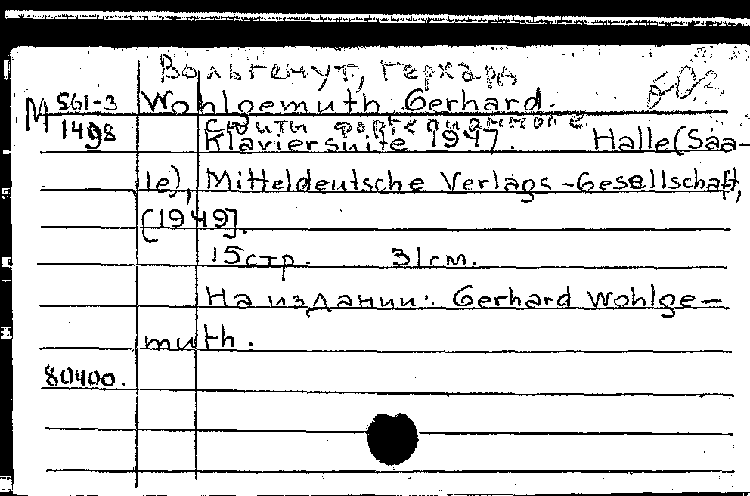 Вольгемут, Герхард
М 561-3 Wohlgemuth Gerhard.
1498 Сюиты фортепианные
Klaviersuite 1947. Halle(Saa-
le), Mitteldeutsche Verlags-Gesellschaft,
[1949].
15стр. 31см.
На издании: Gerhard Wohlge-
muth.
80400.